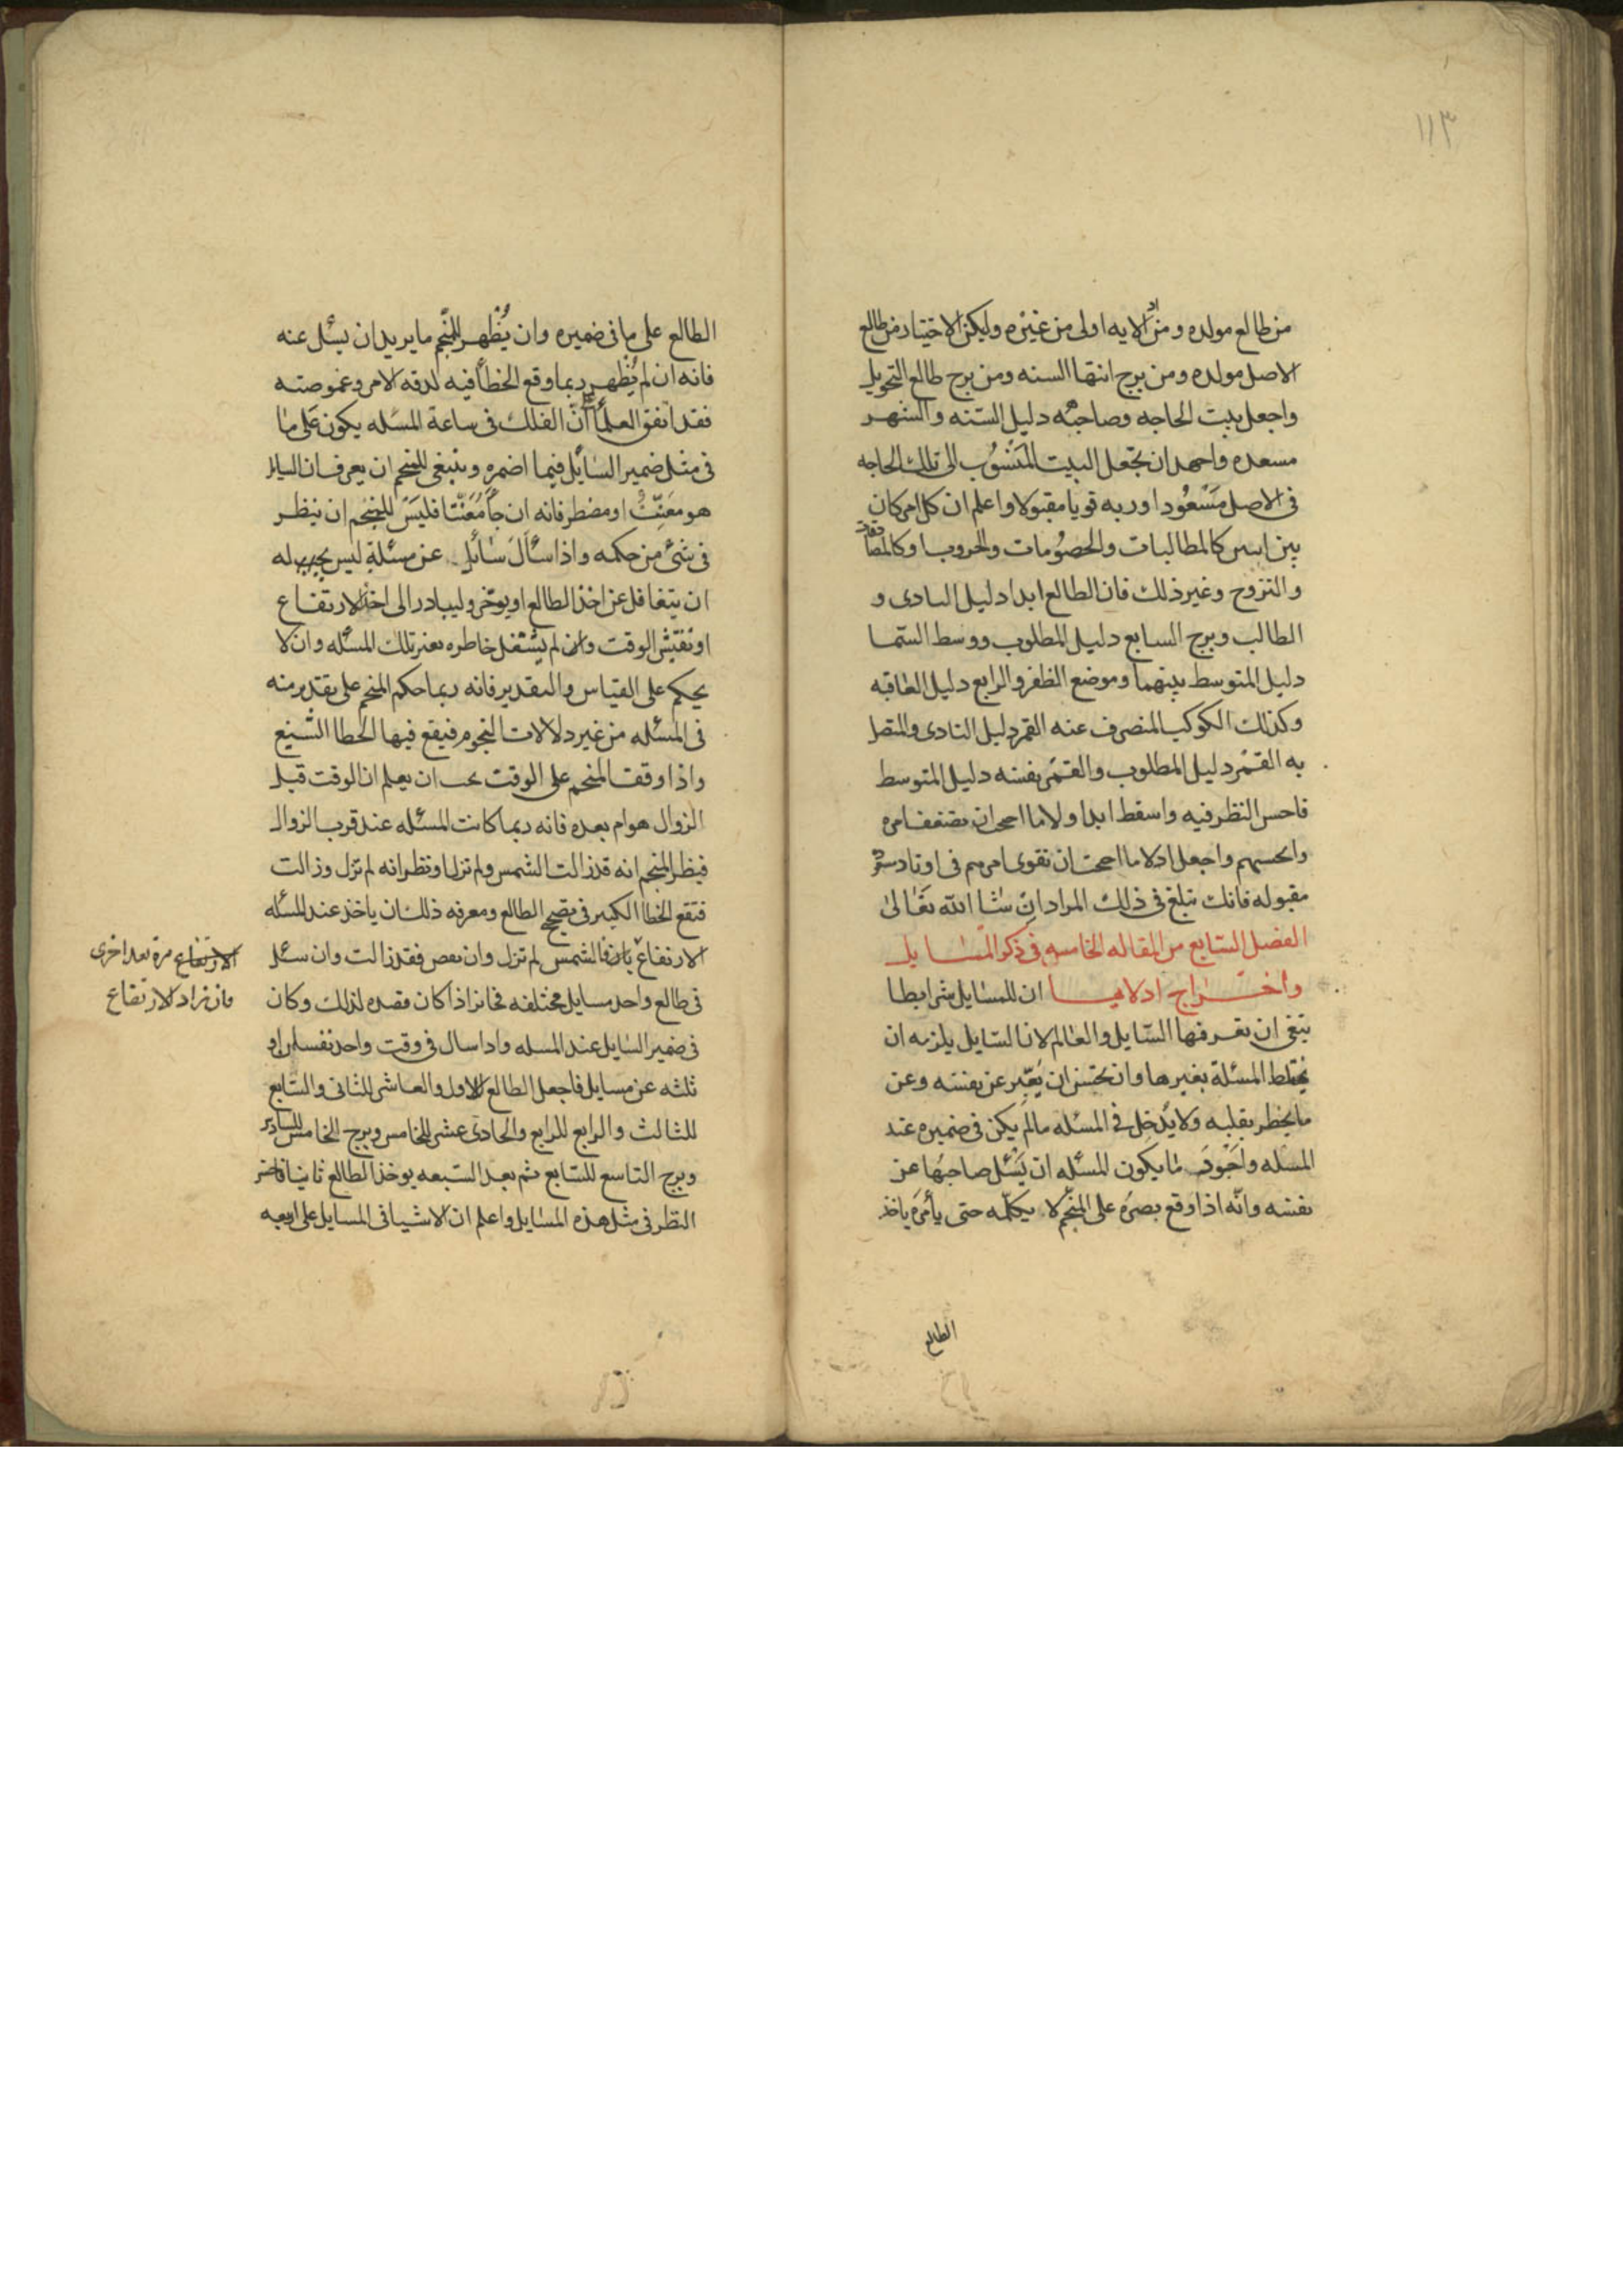 ١١٣
من طالع مولده ومن الايه اولى من غيره وليكن الاختيار من طالع
الاصل مولده ومن برج انتها السنه ومن برج طالع التحويل
واجعل بيت الحاجه وصاحبه دليل السنه والشهر
مسعده واجهد ان تجعل البيت المنسوب الى تلك الحاجه
فى الاصل مسعودا وربه قويا مقبولا واعلم ان كل امر كان
بين اسن كالمطالبات والخصومات والحروب وكالمصادقات
والتزوج وغير ذلك فان الطالع ابدا دليل البادى و
الطالب وبرج السابع دليل المطلوب ووسط السما
دليل المتوسط بينهما وموضع الظفر والرابع دليل العاقبه
وكذلك الكوكب المنصرف عنه القمر دليل البادى والمتصل
به القمر دليل المطلوب والقمر نفسه دليل المتوسط
فاحسن النظر فيه واسقط ابدا ولاما احببت ان تضعف امره
وانحسهم واجعل ادلا ما احببت ان تقوى امرهم فى اوتاد
مقبوله فانك تبلغ فى ذلك المراد ان شا الله تعالى
الفصل السابع من المقاله الخامسه فى ذكر المسايل
وأخراج ادلايها ان للمسايل شرايطا
ينبغى ان يعرفها السايل والعالم لان السايل يلزمه ان
يختلط المسئلة بغيرها وان يحسن ان يعبر عن نفسه وعن
ما يخطر بقلبه ولا يدخل فى المسئله مالم يكن فى ضميره عند
المسله واجود ما يكون المسئله ان يسئل صاحبها عن
نفسه وانه اذا وقع بصره على المنجم لا يكلمه حتى يأمره ياخذ
الطالع
الطالع على ما فى ضميره وان يظهر للمنجم ما يريد ان يسئل عنه
فانه ان لم يظهر ربما وقع الخطأ فيه لدقه الامر وغموضته
فقد اتفق العلما ان الفلك فى ساعة المسئله يكون على ما
فى مثل ضمير السايل فيما اضمره وينبغى للمنجم ان يعرف ان السايل
هو معنت او مضطر فانه ان جا معنتا فليس للمنجم ان ينظر
فى شئ من حكمه واذا سأل سائل عن مسئلة ليس يجب له
ان يتغافل عن اخذ الطالع او يوخر وليبادر الى اخذ الارتفاع
او تفتيش الوقت وان لم يشتغل خاطره بغير تلك المسئله وان لا
يحكم على القياس والتقدير فانه ربما حكم المنجم على تقدير منه
فى المسئله من غير دلالات النجوم فيقع فيها الخطا الشنيع
واذا وقف المنجم على الوقت يجب ان يعلم ان الوقت قبل
الزوال هو ام بعده فانه ربما كانت المسئله عند قرب الزوال
فيظن المنجم انه قد زالت الشمس ولم تزل او نظن انه لم تزل وزالت
فتقع الخطا الكبير فى تصحيح الطالع ومعرفه ذلك ان ياخذ عند المسئله
الارتفاع فالشمس لم تزل وان نقص فقد زالت وان سئل
الارتفاع مره بعد اخرى
فان زاد الارتفاع
فى طالع واحد مسايل مختلفه فجايز اذا كان قصده لذلك وكان
فى ضمير السايل عند المسله واذا سال فى وقت واحد نفسان او
ثلثه عن مسايل فاجعل الطالع للاول والعاشر للثانى والسابع
للثالث والرابع للرابع والحادى عشر للخامس وبرج الخامس للسادس
وبرج التاسع للسابع ثم بعد السبعه يوخذ الطالع ثانيا
النظر فى مثل هذه المسايل واعلم ان الاشيا فى المسايل على اربعه